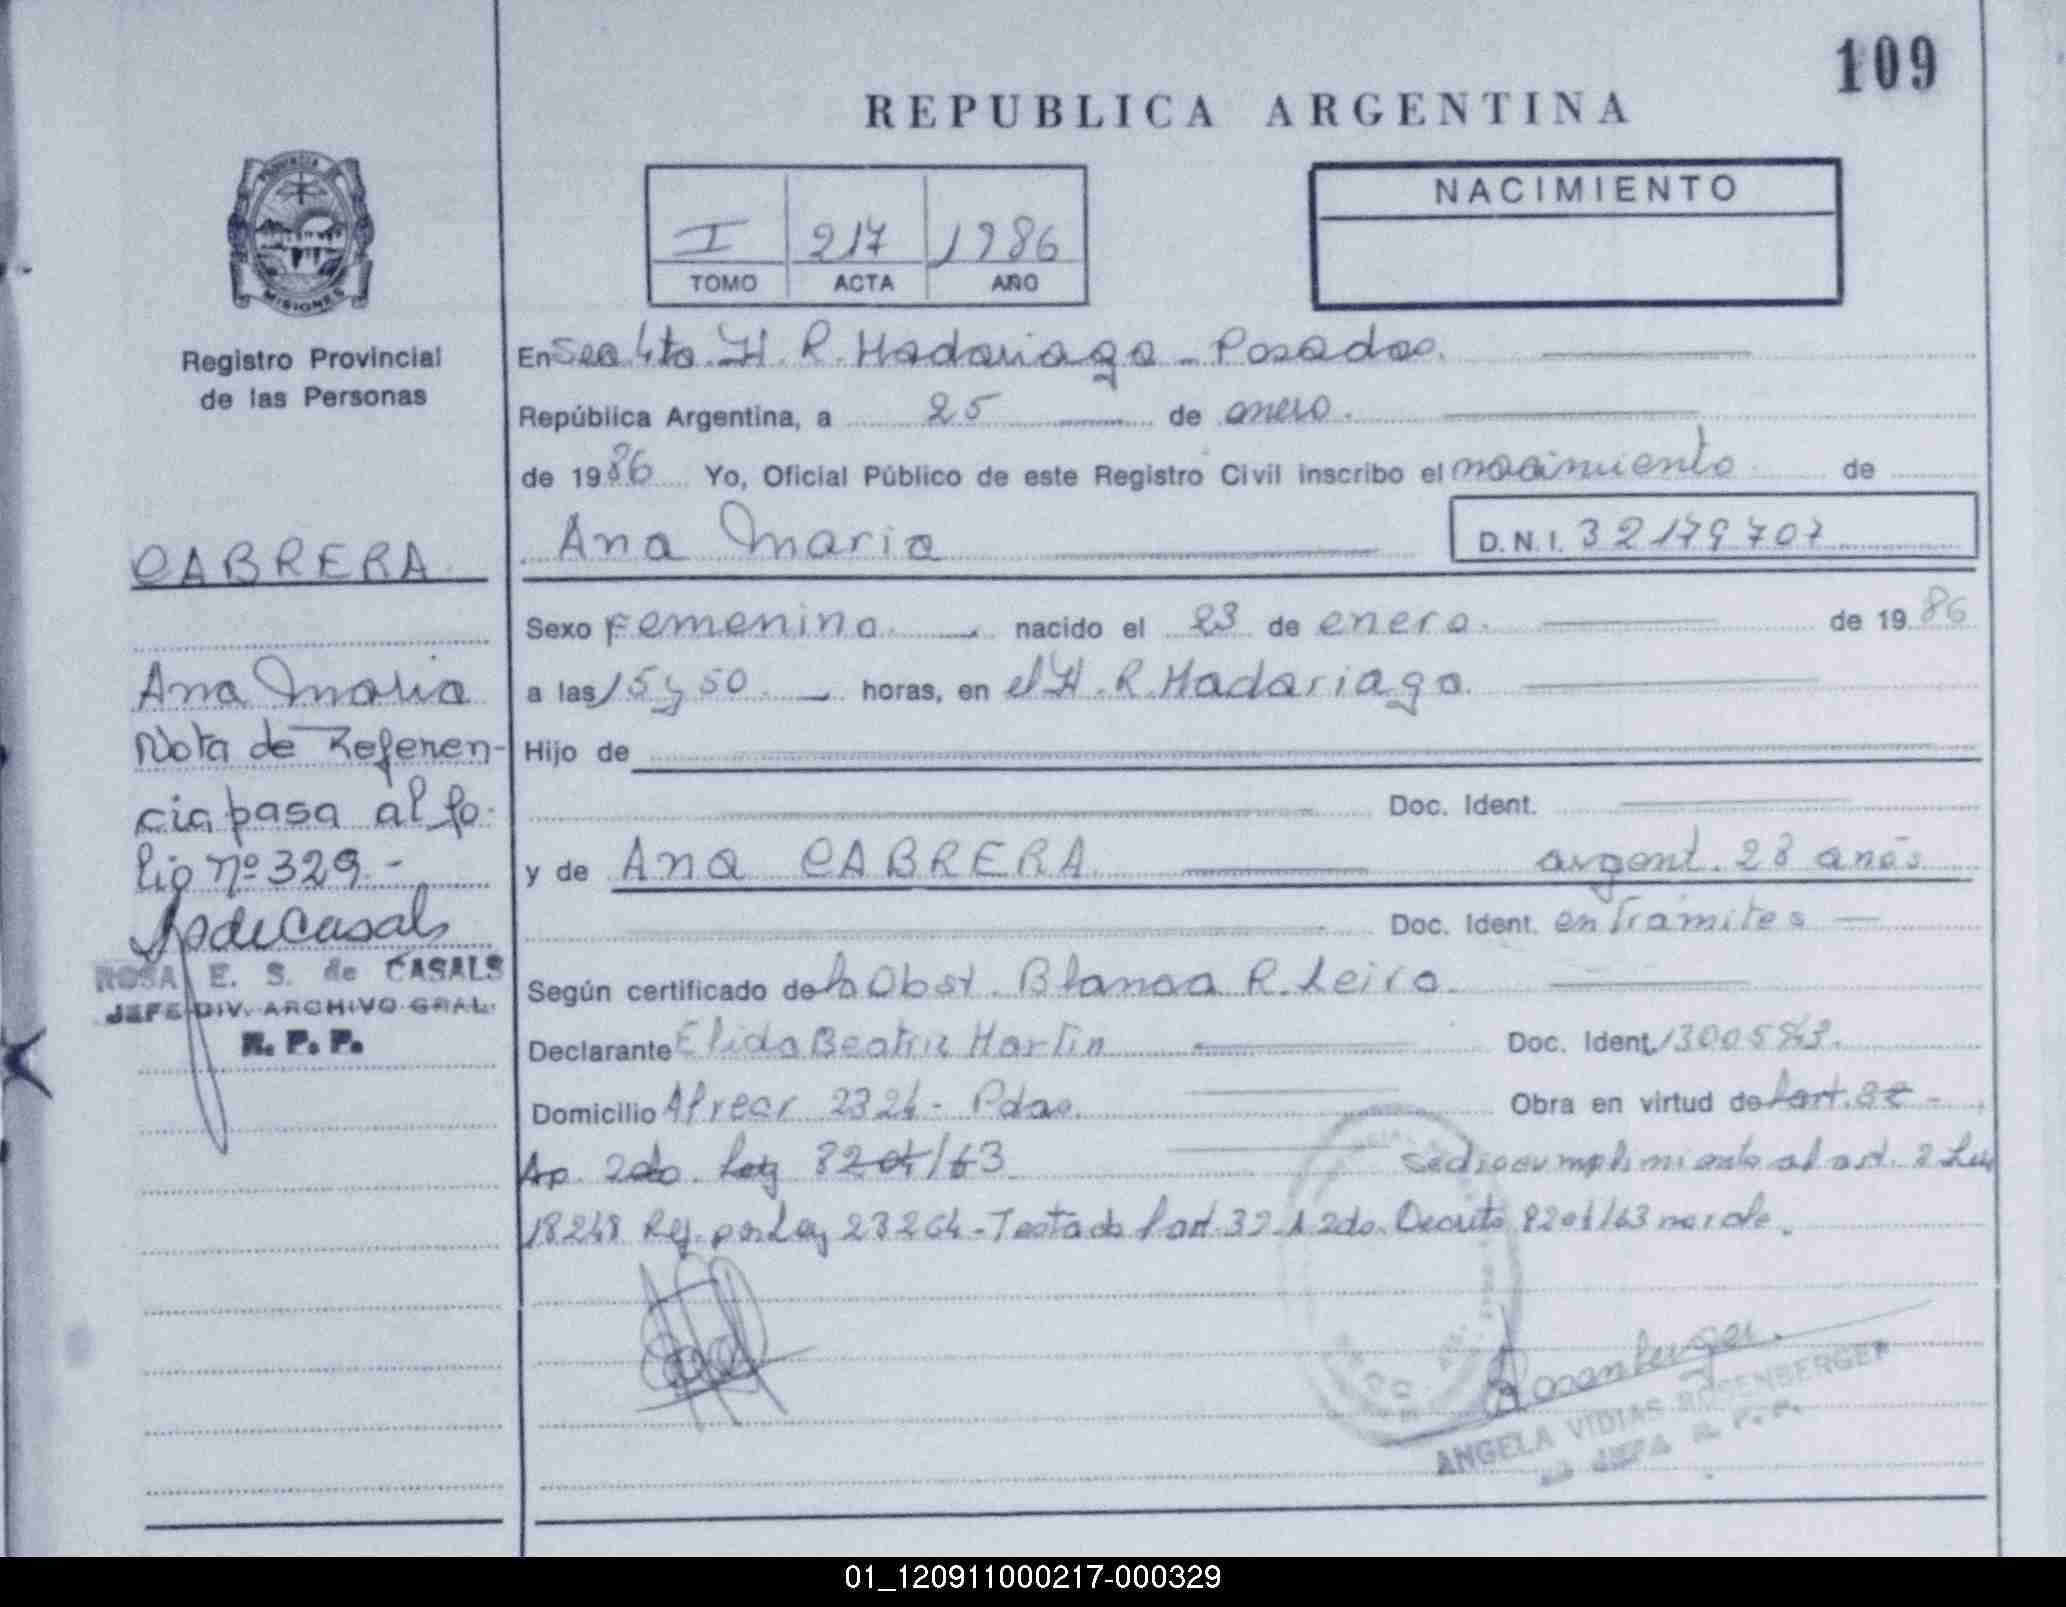 109
REPUBLICA ARGENTINA
PROVINCIA DE
MISIONES
I 217 1986
TOMO ACTA AÑO
NACIMIENTO
Registro Provincial
de las Personas
En Sec 4ta. H. R. Madariaga - Posadas.
República Argentina, a 25 de enero.
de 1986 Yo, Oficial Público de este Registro Civil inscribo el nacimiento de
Ana Maria
D.N.I. 32179707
CABRERA.
Sexo Femenino. nacido el 23 de enero. de 1986
Ana Maria
a las 15 y 50. horas, en el H. R. Madariaga.
Nota de Referen-
Hijo de
cia pasa al fo-
Doc. Ident.
lio nº 329.-
y de Ana CABRERA. argent. 28 años
Doc. Ident. en Tramites
ROSA E. S. de CASALS
JEFE DIV. ARCHIVO GRAL.
R. P. P.
Según certificado de la Obst. Blanca R. Leiva.
Declarante Elida Beatriz Martin Doc. Ident.
Domicilio Alvear 2324 - Pdas. Obra en virtud de l'art. 32 -
Ap. 2do. 8204/63 cumplimiento al art. 2 Ley
18248 Ref. por Ley 23264 - Testado l'art. 32 A 2do. Decreto 8204/63 no vale.
ANGELA VIDIAS ROSENBERGER
JEFA R. P. P.
01_120911000217-000329